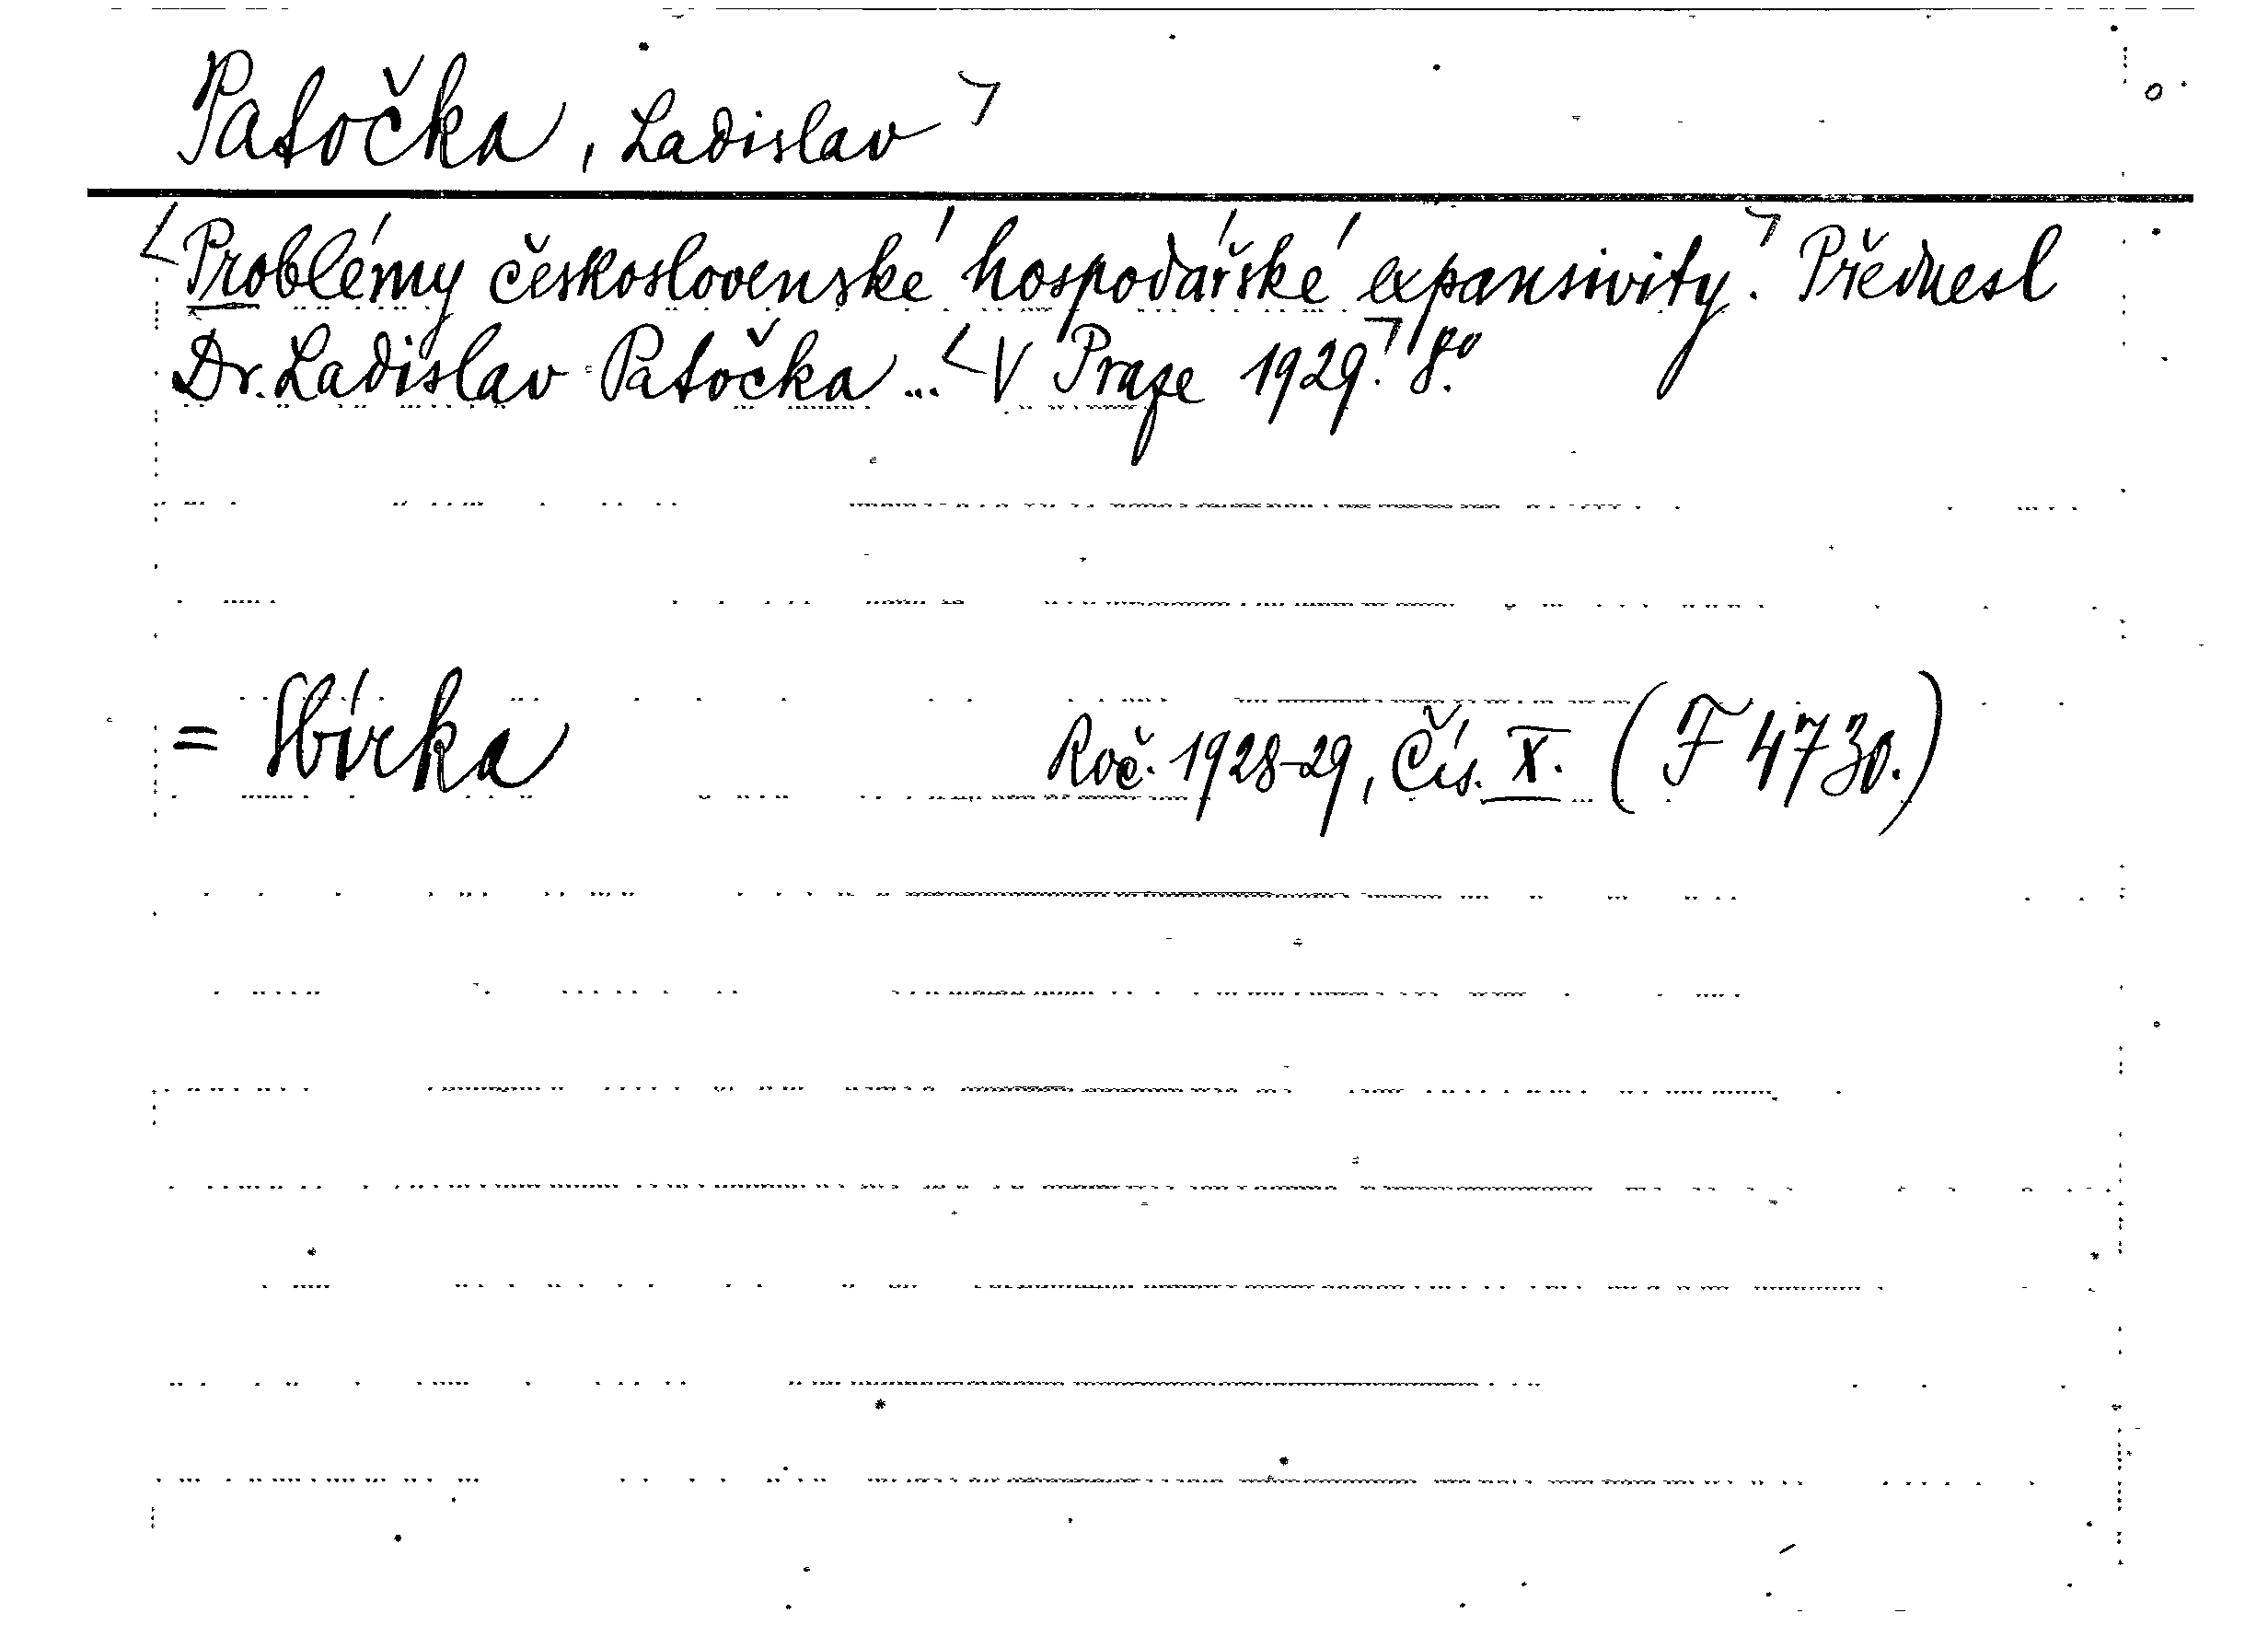 Patočka, Ladislav
Problémy československé hospodářské expansivity. Přednesl
Dr. Ladislav Patočka ... V Praze 1929. 8º.
= Sbírka Roč. 1928-29, Čís. X. (F 4730.)